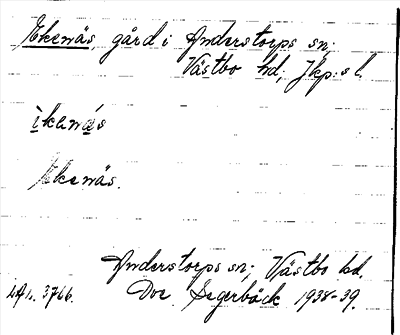 Ekenäs, gård i Anderstorps sn;
Västbo hd; Jkp:s l.
ìkenä́s
Ekenäs.
Anderstorps sn; Västbo hd.
3766. Doc. Segerbäck 1938-39.